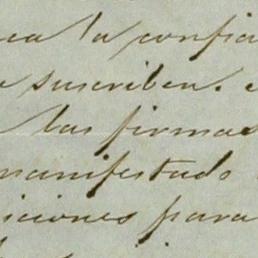 sea la confia
suscriben.
las firmas
manifestado
iciones para